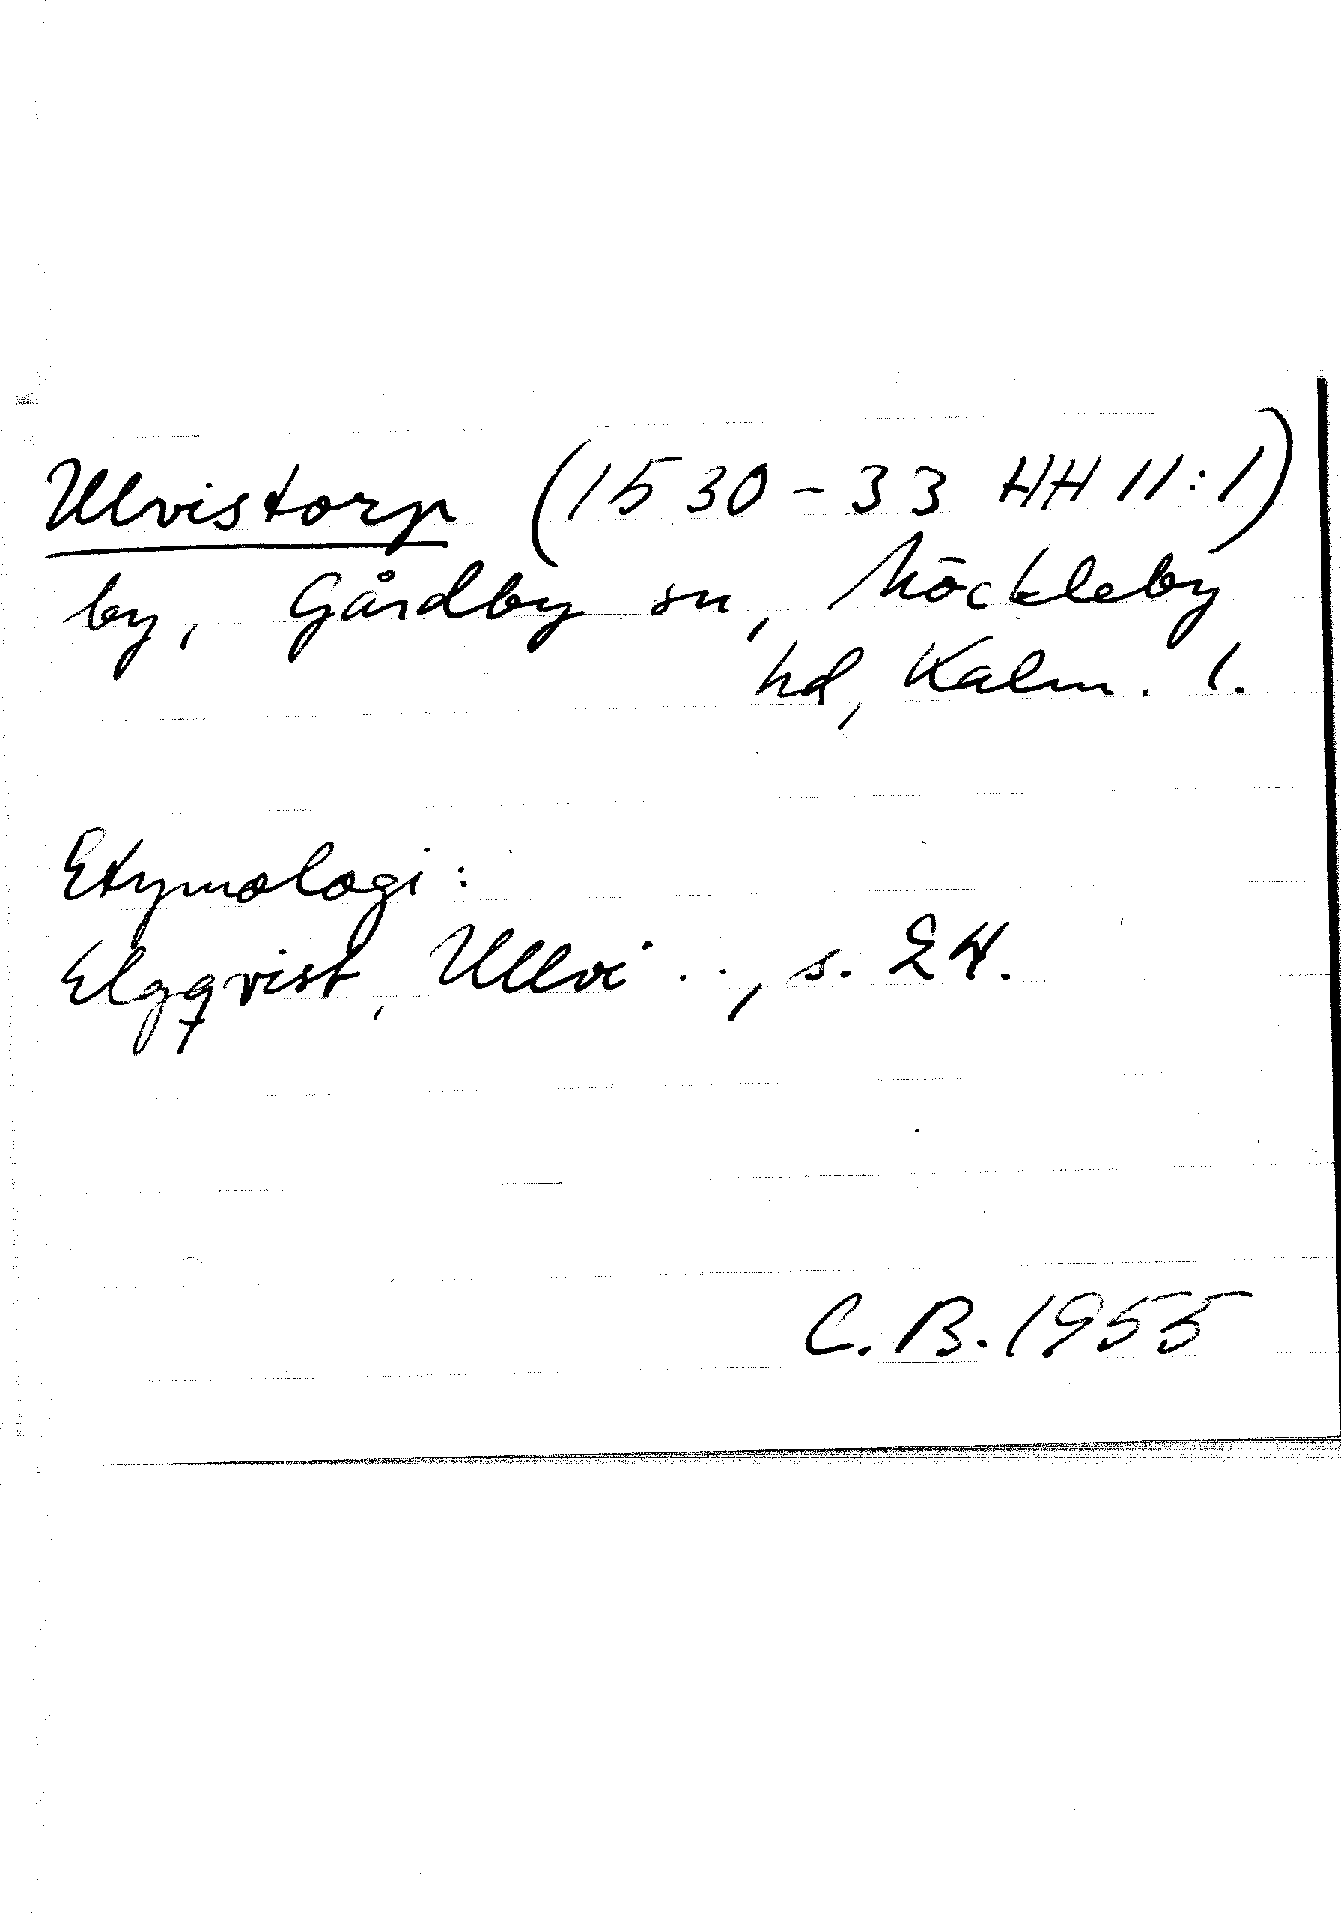 Ulvistorp (1530-33 HH 11:1)
by, Gårdby sn, Möckleby
hd, Kalm. l.
Etymologi:
Elgqvist, Ullvi . ., s. 24.
C. B. 1955